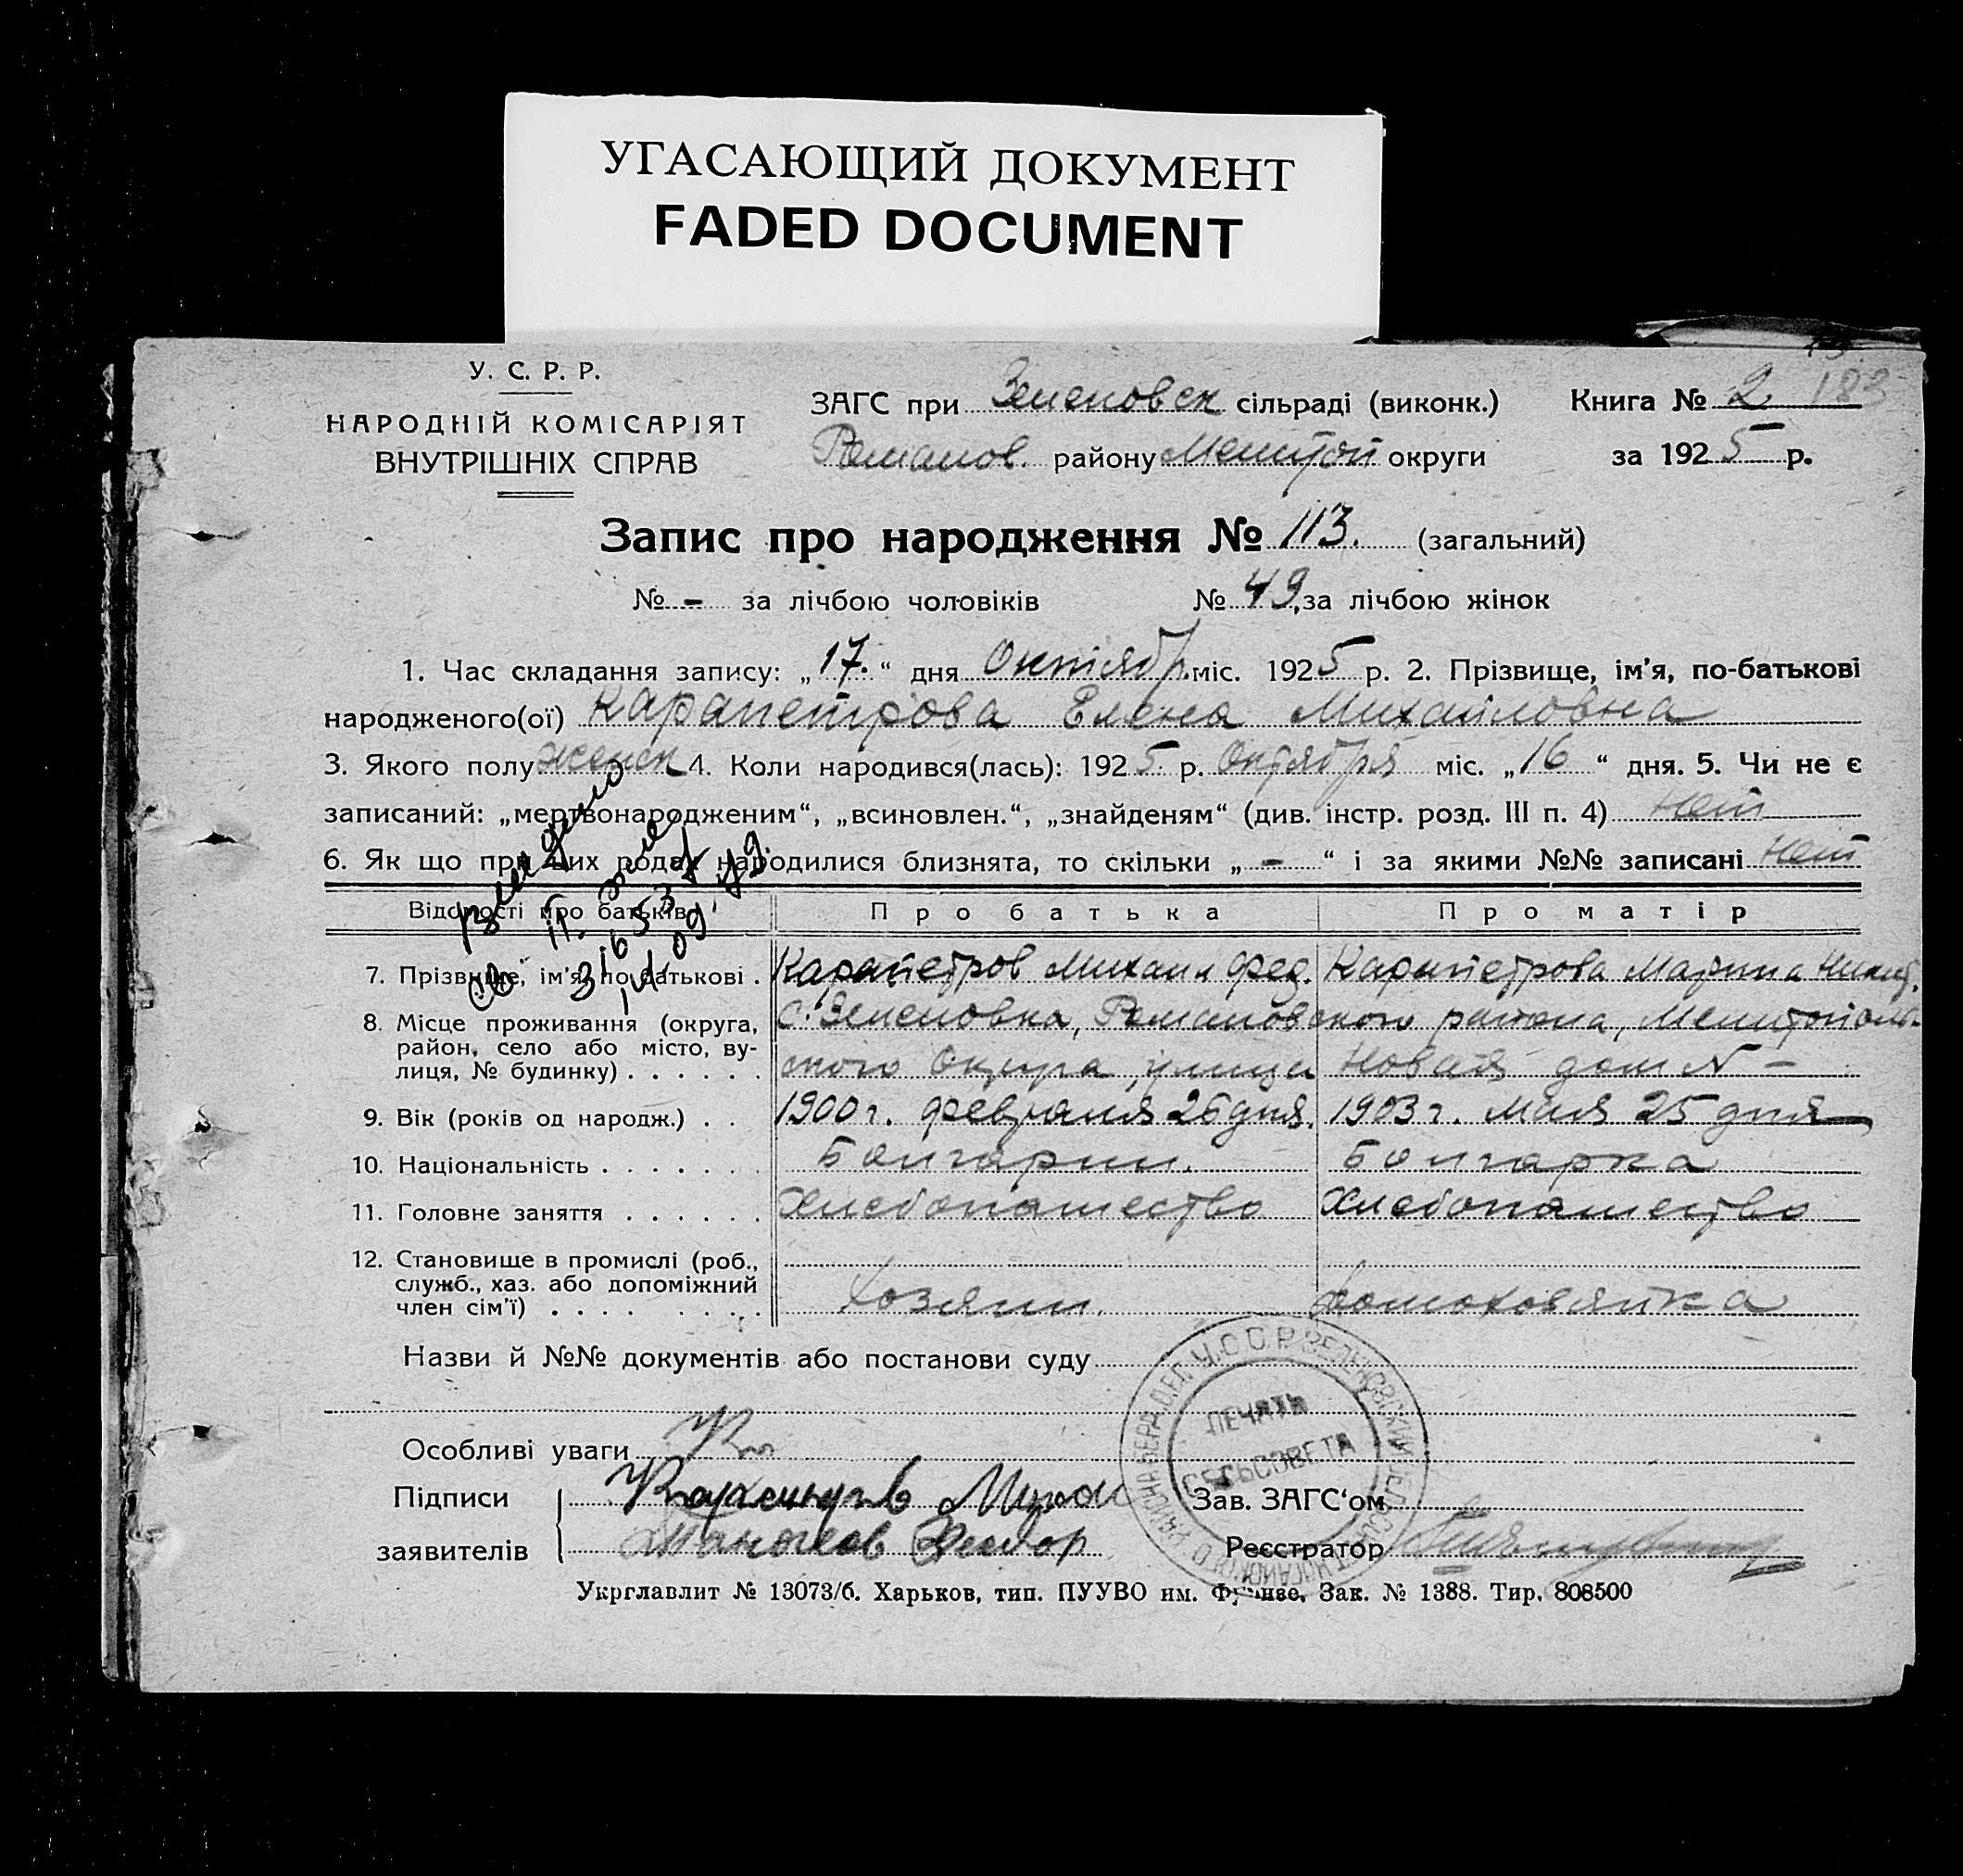 УГАСАЮЩИЙ ДОКУМЕНТ
FADED DOCUMENT
У. С. Р. Р.
НАРОДНІЙ КОМІСАРІЯТ
ВНУТРІШНІХ СПРАВ
ЗАГС при Зеленовск сільраді (виконк.)
Романов. району Мелитоп округи
Книга № 2 183
за 1925 р.
Запис про народження № 113. (загальний)
№ - за лічбою чоловіків № 49, за лічбою жінок
1. Час складання запису: „17.“ дня Октябр. міс. 1925 р. 2. Прізвище, ім’я, по-батькові
народженого(ої) Карапетрова Елена Михайловна
3. Якого полу женск 4. Коли народився(лась): 1925 р. Октября міс. „16“ дня. 5. Чи не є
записаний: „мертвонародженим“, „всиновлен.“, „знайденям“ (див. інстр. розд. III п. 4) нет
6. Як що при цих родах народилися близнята, то скільки „-“ і за якими №№ записані нет
Відомості про батьків Про батька Про матір
7. Прізвище, ім’я, по-батькові . Карапетров Михаил Фед. Карапетрова Марина
8. Місце проживання (округа, район, село або місто, вулиця, № будинку) . . . . . . с. Зеленовка, Романовского района, Мелитополь-
ского Округа, улица Новая дом № -
9. Вік (років од народж.) . . 1900 г. февраля 26 дня. 1903 г. Мая 25 дня
10. Національність . . . . . . . Болгарин. Болгарка
11. Головне заняття . . . . . . Хлебопашество Хлебопашество
12. Становище в промислі (роб.,
служб., хаз. або допоміжний
член сім’ї) . . . . . . . . Хозяин. Домохозяйка
Назви й №№ документів або постанови суду
Особливі уваги
Підписи
заявителів Федор
Зав. ЗАГС‘ом
Реєстратор
ПЕЧАТЬ
СЕЛЬСОВЕТА
Укрглавлит № 13073/б. Харьков, тип. ПУУВО им. Фрунзе, Зак. № 1388. Тир. 808500